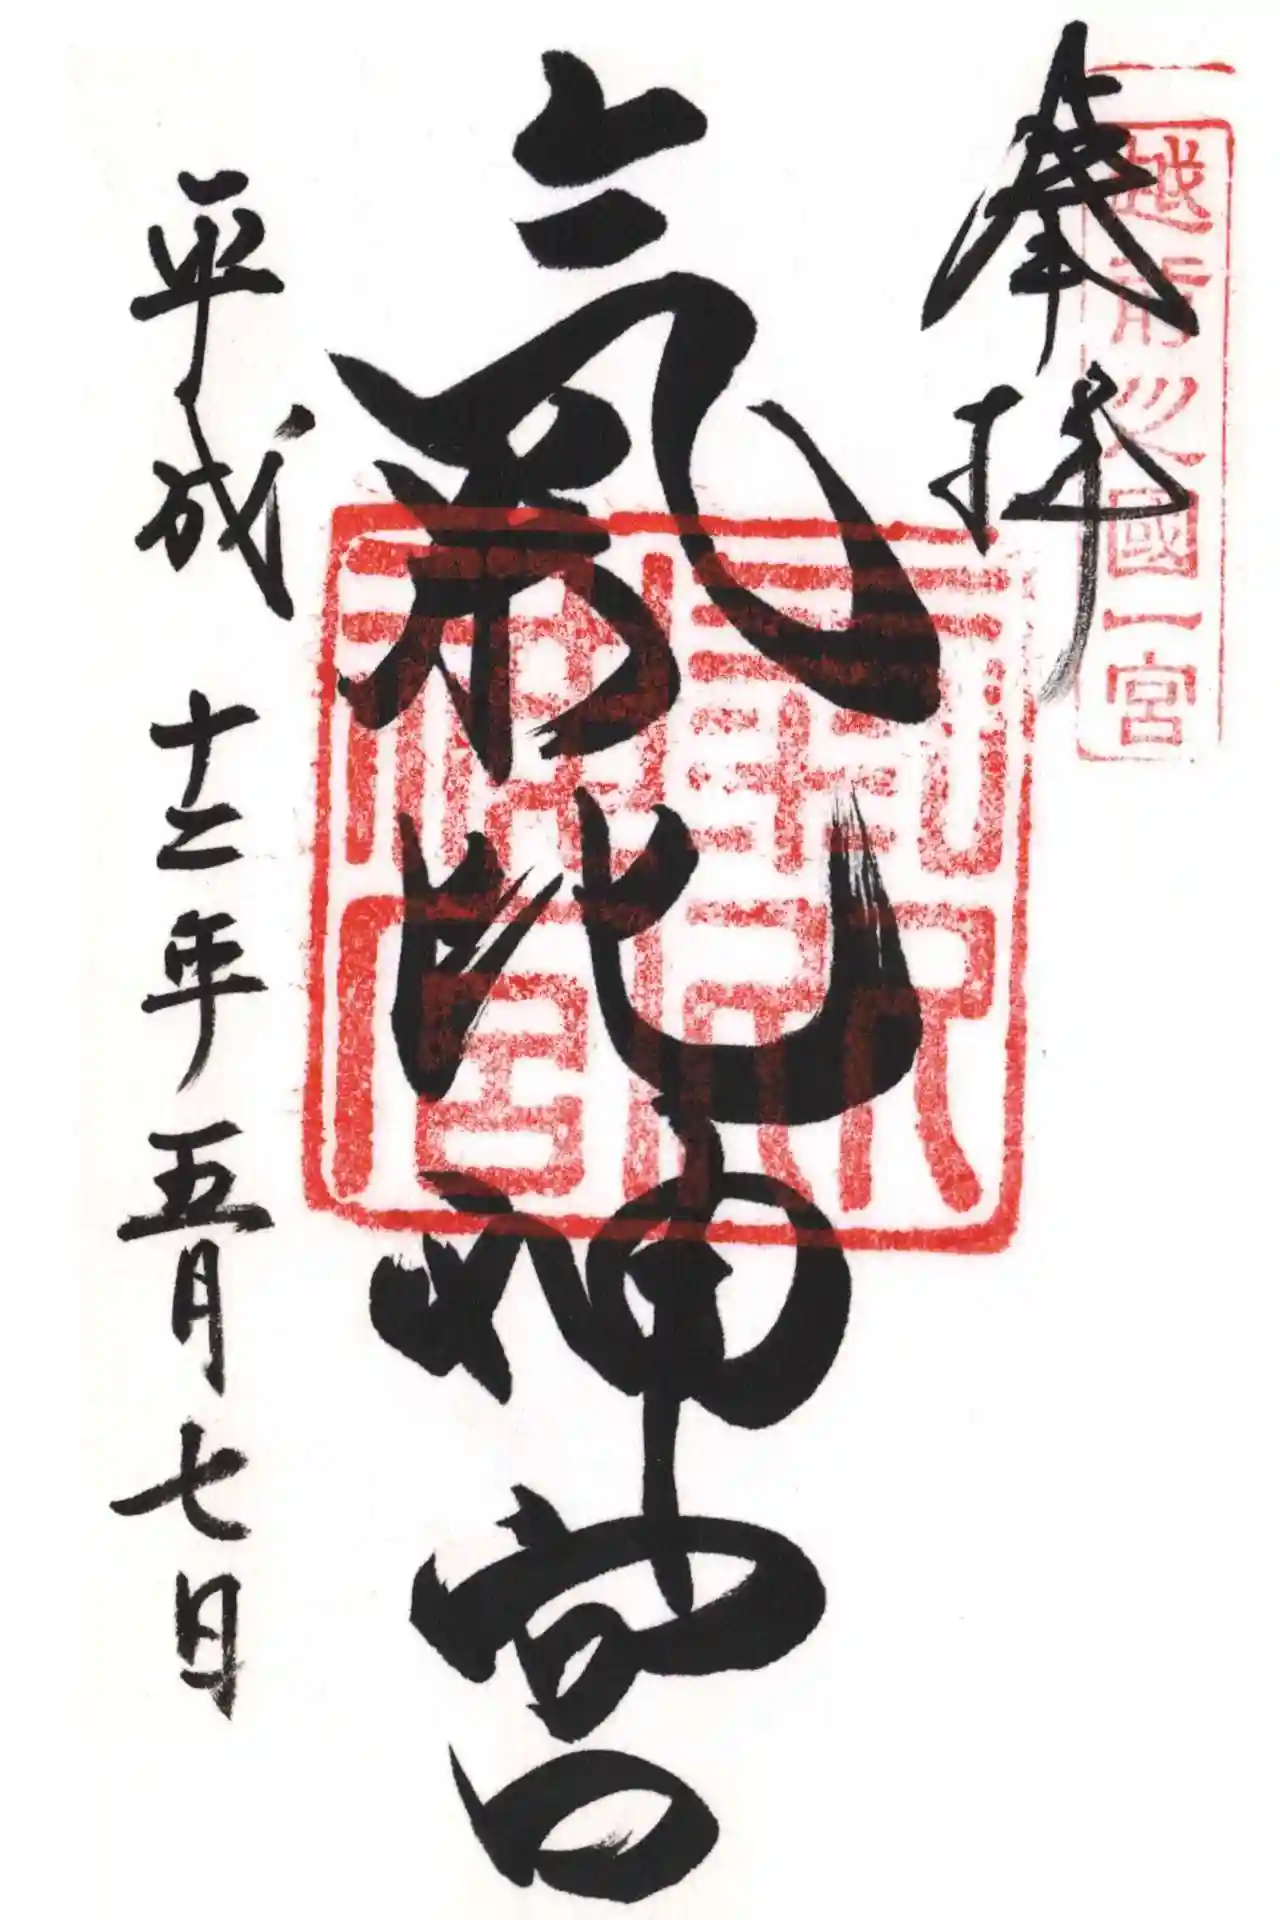 奉拝
越前之國一宮
氣比神宮
平成十二年五月七日